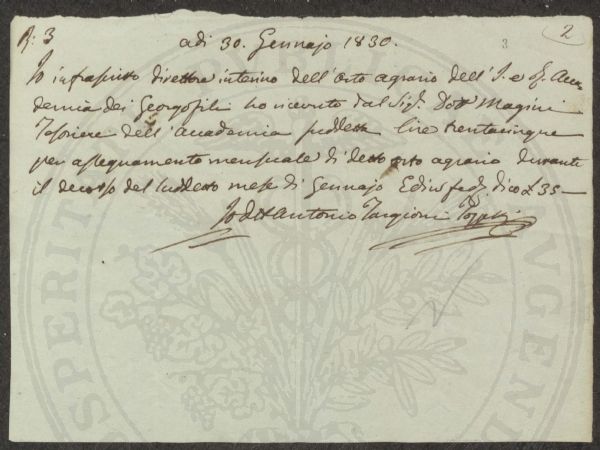 R: 3
2
3
adi 30. Gennajo 1830.
Io infrascritto direttore interino dell'orto agrario dell'I. e R. Acca
demia dei Georgofili ho ricevuto dal Sig.r Dott Magini
Tesoriere dell'Accademia suddetta lire trentacinque
per assegnamento mensuale di detto orto agrario durante
il decorso del suddetto mese di Gennajo Ed in fed. dico £ 35—
Io dtt Antonio Targioni Tozzetti
PROSPERITATI AUGENDAE